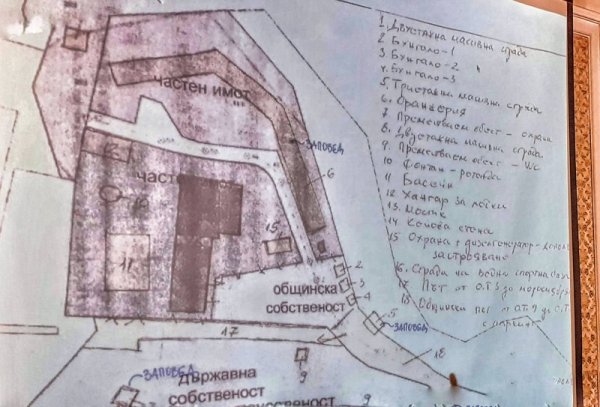 1. Двустажна масивна сграда
2 Бунгало - 1
3 Бунгало - 2
4. Бунгало - 3
5. Триетажна масивна сграда
6. Оранжерия
7 Преместваем обект - охрана
8. Двустажна масивна сграда
9. Преместваем обект - WC
10 Фонтан - ротонда
11 Басейн
12 Хангар за лодки
13. Мостик
14. Кейова стена
15 Охрана + дизелгенератор -
застрояване
16. Сгради на водно спортна база
17 Път от о.т.3 до
18. Общински път от о.т.
частен имот
ЗАПОВЕД
6
час
15
11
2
3
4
общинска
собственост
5
ЗАПОВЕД
17
18
9
ЗАПОВЕД
държавна
собственост
9